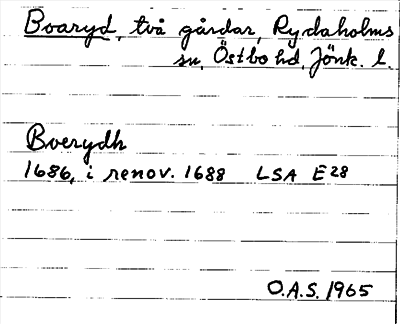 Boaryd, två gårdar, Rydaholms
sn, Östbo hd, Jönk. l.
Boerydh
1686, i renov. 1688 LSA E28
O.A.S. 1965